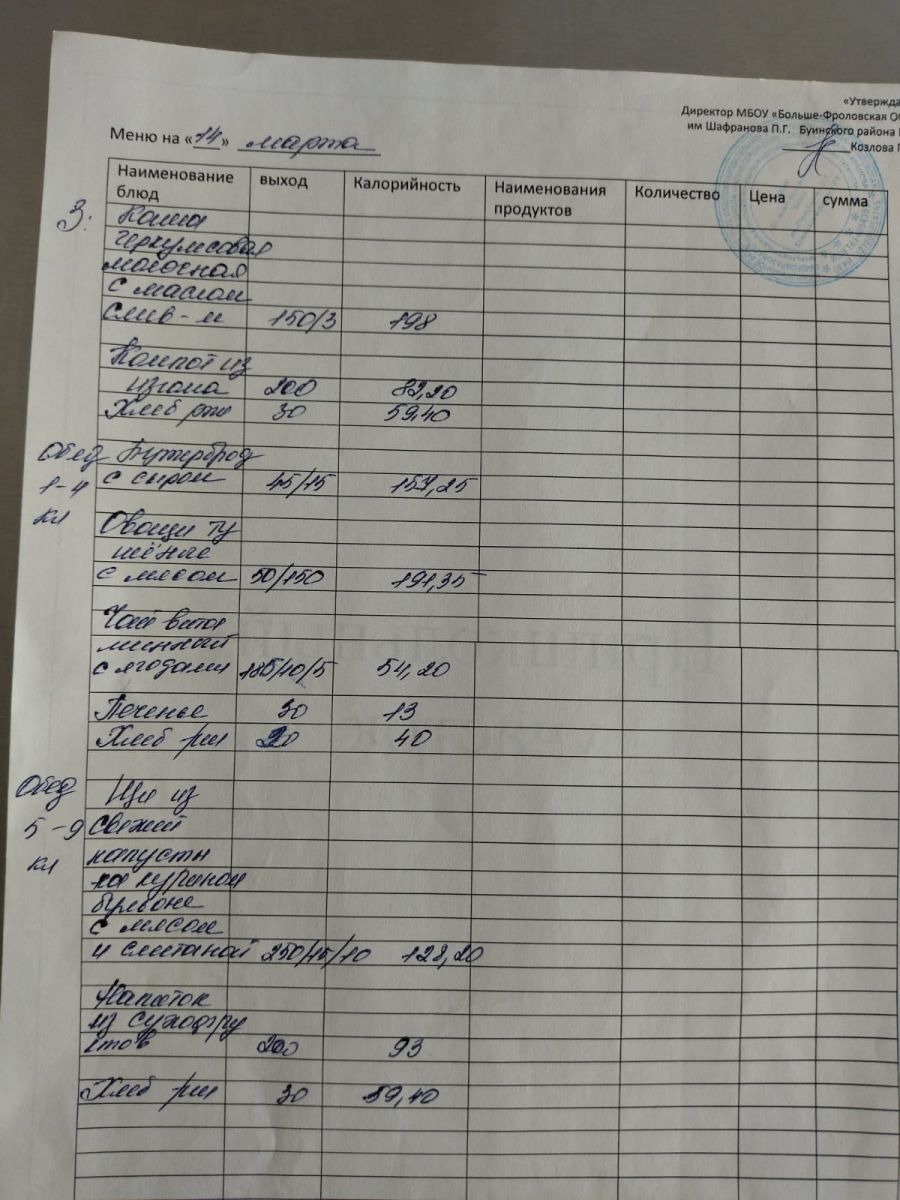 «Утвержда
Директор МБОУ «Больше-Фроловская ОО
им Шафранова П.Г. Буинского района
Козлова Г
Меню на «14» марта
Наименование блюд выход Калорийность Наименования продуктов Количество Цена сумма
З. Каша
геркулесовая
молочная
с маслом
слив-м 150/3 198
Компот из
изюма 200 82,20
Хлеб рж 30 59,40
Обед Бутерброд
с сыром 45/15 157,25
1-4
кл
Овощи ту
шёные
с мясом 50/150 191,35
Чай вита
минный
с ягодами 185/10/5 54,20
Печенье 30 13
Хлеб рж 20 40
Обед Щи из
5-9 свежей
кл капусты
на курином
бульоне
с мясом
и сметаной 250/45/10 128,20
Напиток
из сухофру
ктов 200 93
Хлеб рж 30 59,40